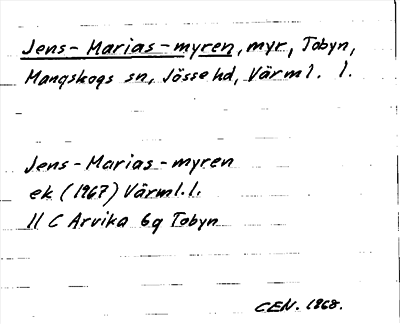 Jens-Marias-myren, myr, Tobyn,
Mangskogs sn, Jösse hd, Värml. l.
Jens-Marias-myren
ek (1967) Värml. l.
11 C Arvika 6g Tobyn
CEN. 1968.